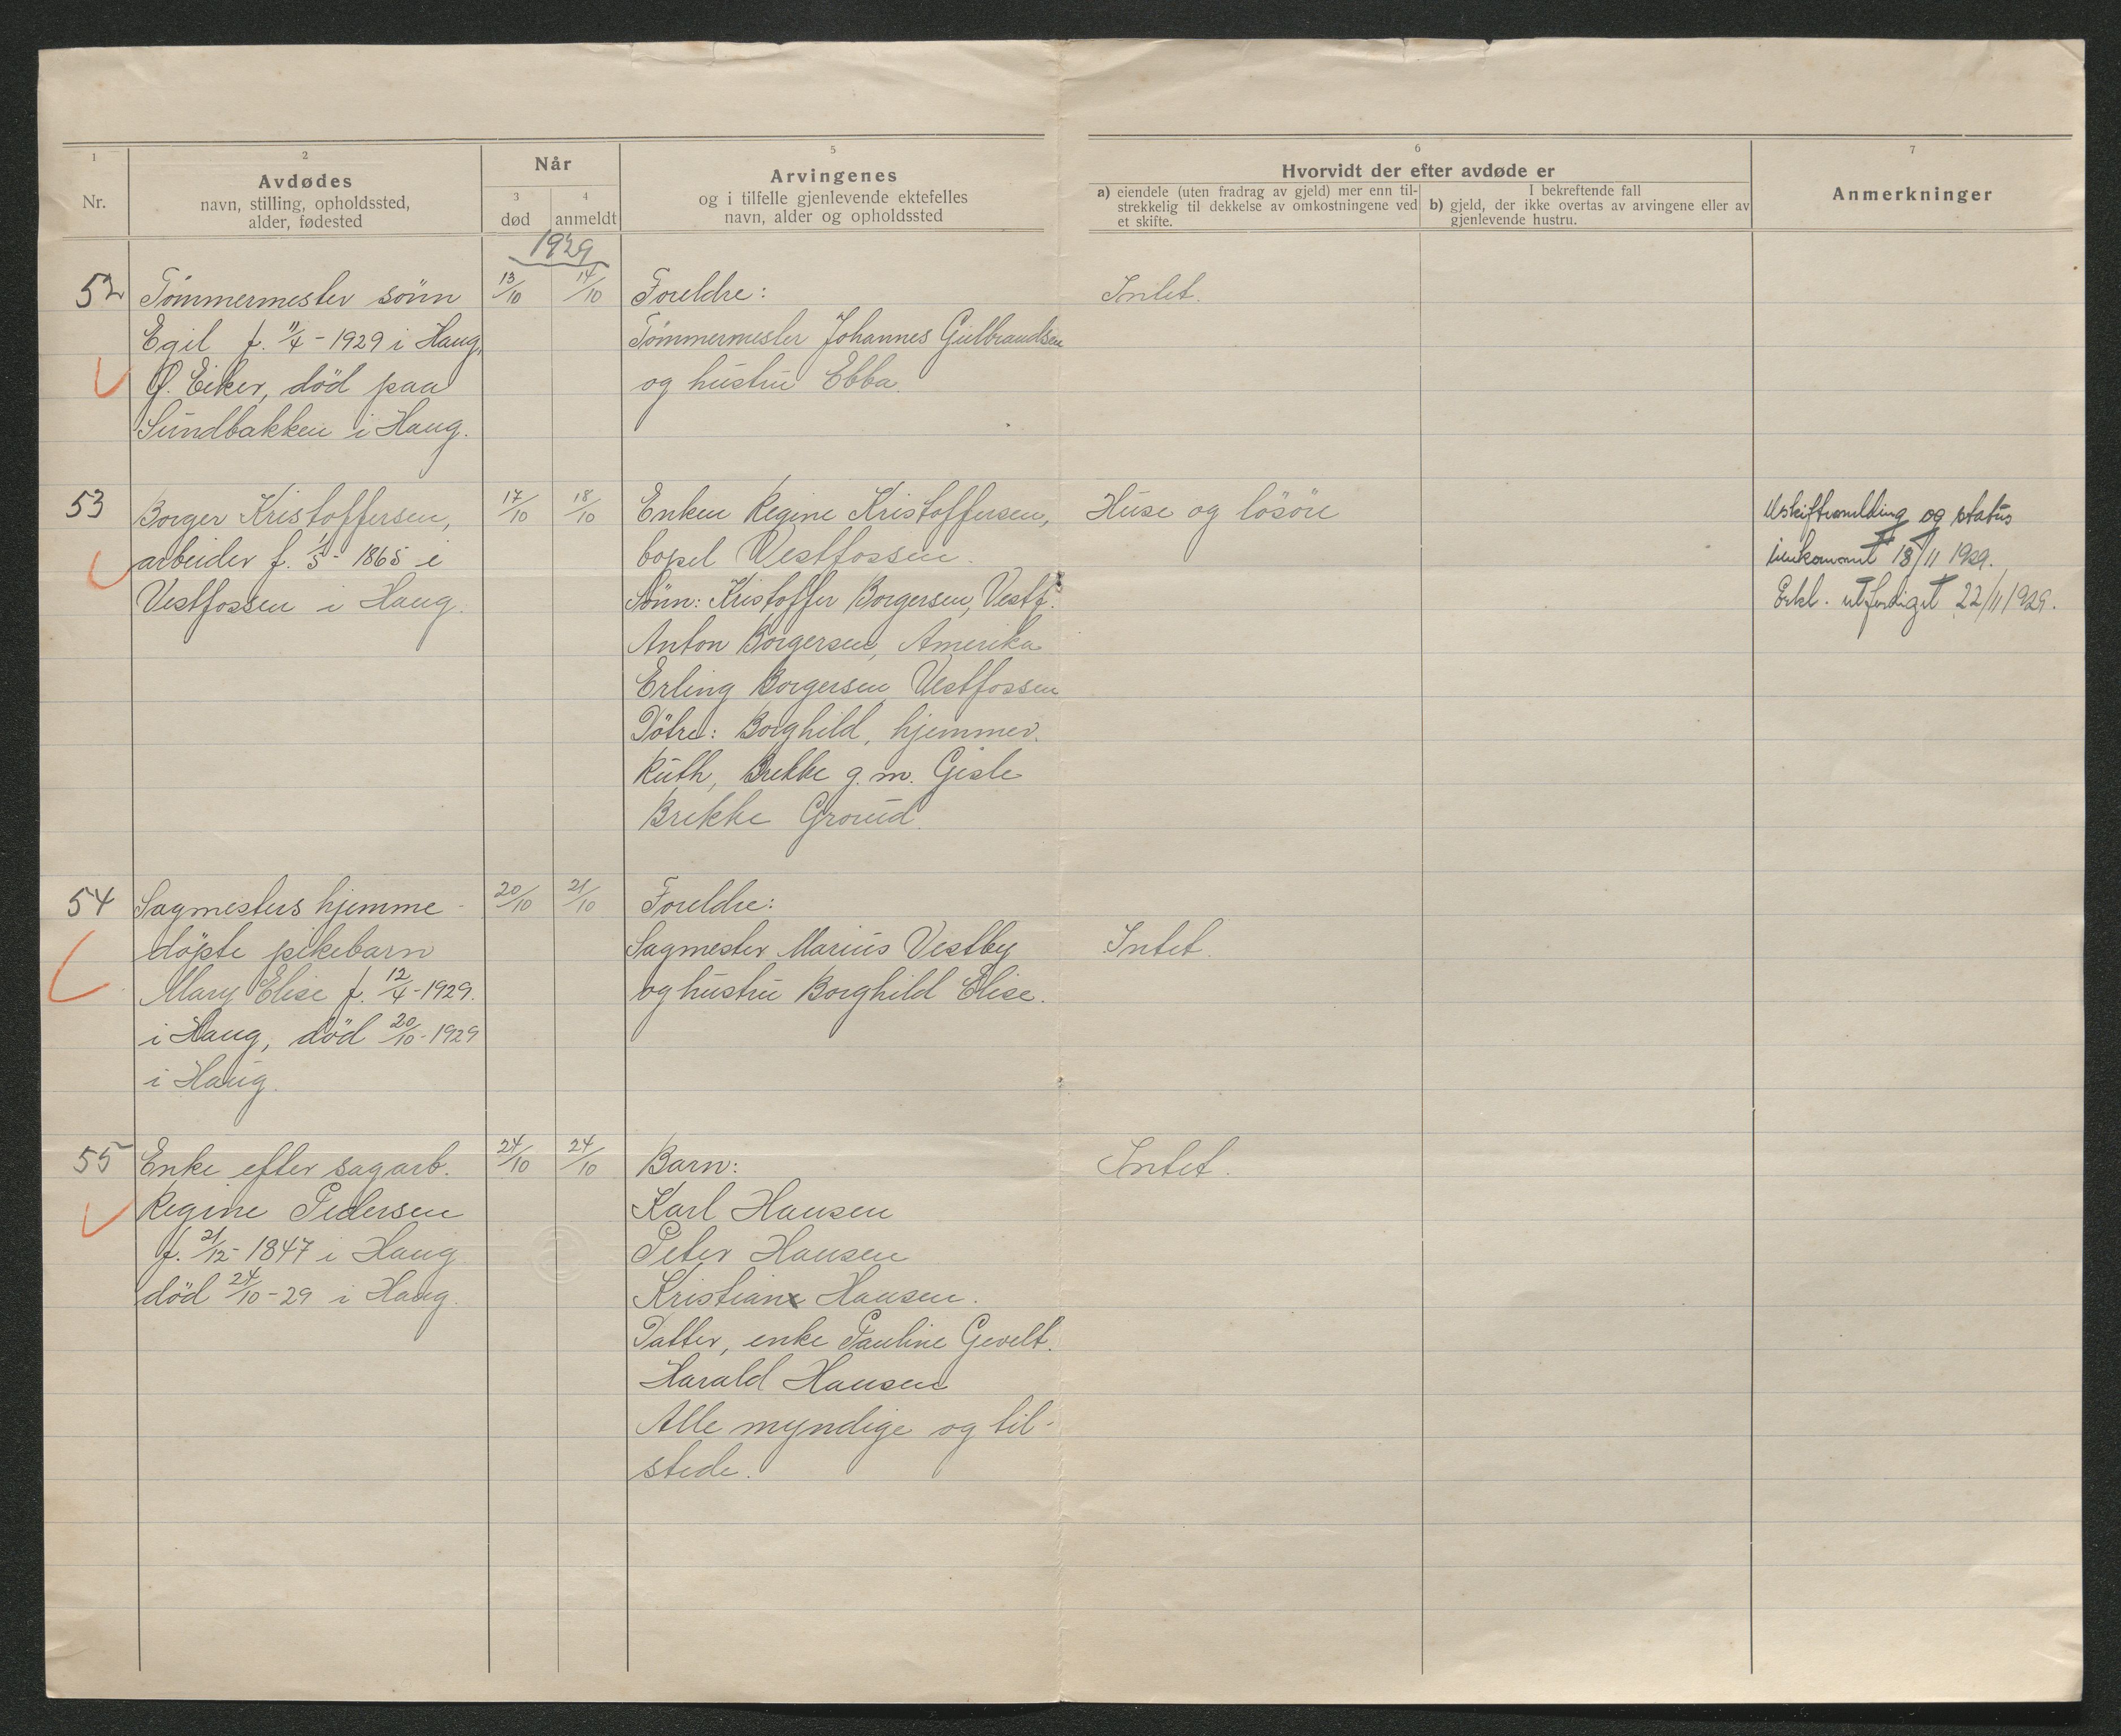 1
Nr.
2
Avdødes
navn, stilling, opholdssted,
alder, fødested
Når
3
død
4
anmeldt
5
Arvingenes
og i tilfelle gjenlevende ektefelles
navn, alder og opholdssted
6
Hvorvidt der efter avdøde er
a) eiendele (uten fradrag av gjeld) mer enn til-
strekkelig til dekkelse av omkostningene ved
et skifte.
I bekreftende fall
b) gjeld, der ikke overtas av arvingene eller av
gjenlevende hustru.
7
Anmerkninger
1929
52
Tömmermester sönn
Egil f. 11/4 - 1929 i Haug,
Ø. Eiker, död paa
Sundbakken i Haug.
13/10
14/10
Foreldre:
Tömmermester Johannes Gulbrandsen
og hustru Ebba.
Intet.
53
Borger Kristoffersen,
arbeider f. 1/5 - 1865 i
Vestfossen i Haug.
17/10
18/10
Enken Regine Kristoffersen,
bopel Vestfossen.
Sönn: Kristoffer Borgersen, Vestf.
Anton Borgersen, Amerika
Erling Borgersen Vestfossen
Dötre: Borghild, hjemmev.
Ruth, Brekke g. m. Gisle
Brekke Grorud.
Huse og lösöre
Uskiftemelding og status
innkommet 18/11 1929.
Erkl. utferdiget 22/11 1929.
54
Sagmesters hjemme-
döpte pikebarn
Mary Elise f. 12/4 - 1929.
i Haug, död 20/10 - 1929
i Haug.
20/10
21/10
Foreldre:
Sagmester Marius Vestby
og hustru Borghild Elise.
Intet.
55
Enke efter sagarb.
Regine Pedersen
f. 21/12 - 1847 i Haug
död 24/10 - 29 i Haug.
24/10
24/10
Barn:
Karl Hansen
Peter Hansen
Kristian Hansen.
Datter, enke Pauline Gevelt.
Harald Hansen
Alle myndige og til-
stede.
Intet.